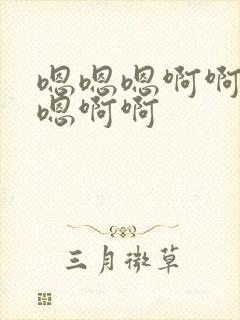 嗯嗯嗯啊啊
嗯啊啊
三月微草